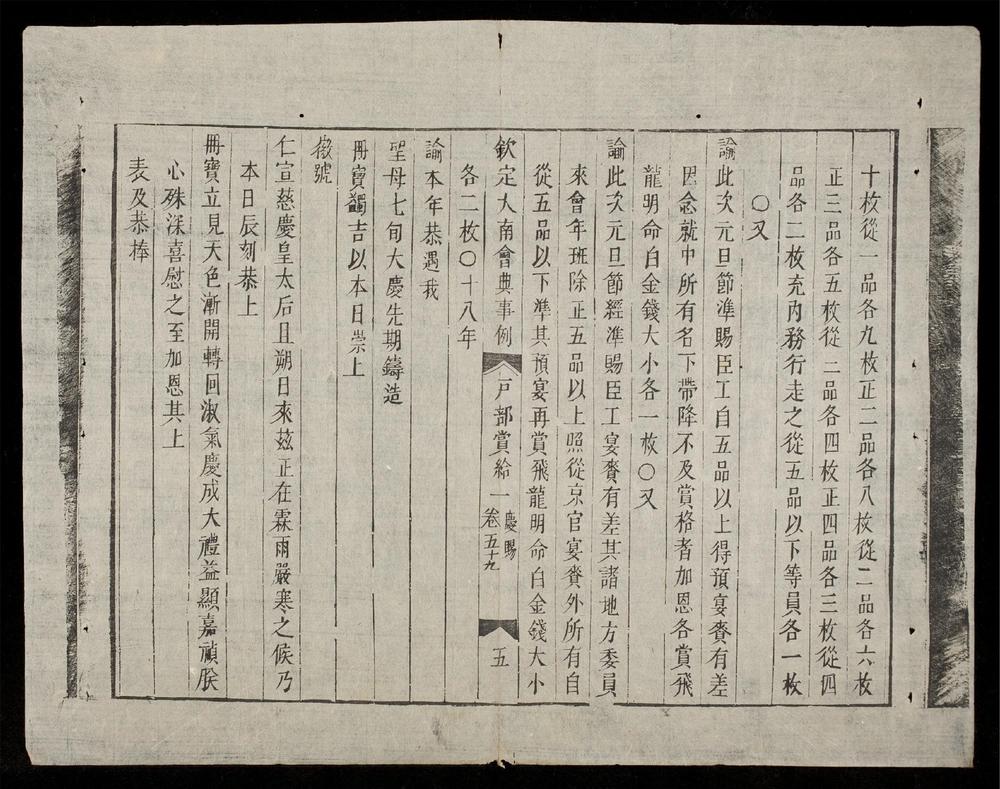 十枚從一品各九枚正二品各八枚從二品各六枚
正三品各五枚從三品各四枚正四品各三枚從四
品各二枚充内務行走之從五品以下等員各一枚
〇又
諭此次元旦節準賜臣工自五品以上得預宴賚有差
因念就中所有名下帶降不及賞格者加恩各賞飛
龍明命白金錢大小各一枚〇又
諭此次元旦節經準賜臣工宴賚有差其諸地方委員
來會年班除正五品以上照從京官宴賚外所有自
從五品以下準其預宴再賞飛龍明命白金錢大小
欽定大南會典事例 戸部賞給一 慶賜 卷五十九 五
各二枚〇十八年
諭本年恭遇我
聖母七旬大慶先期鑄造
冊寶蠲吉以本日崇上
徽號
仁宣慈慶皇太后且朔日來茲正在霖雨嚴寒之候乃
本日辰刻恭上
冊寶立見天色漸開轉回淑氣慶成大禮益顯嘉禎朕
心殊深喜慰之至加恩其上
表及恭捧